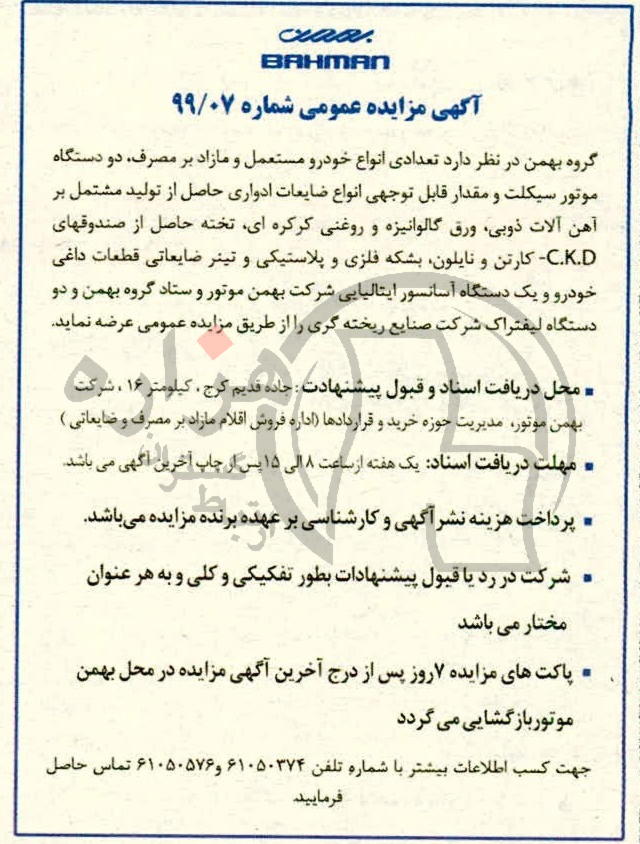 بهمن
BAHMAN
آگهی مزایده عمومی شماره ۹۹/۰۷
گروه بهمن در نظر دارد تعدادی انواع خودرو مستعمل و مازاد بر مصرف، دو دستگاه
موتور سیکلت و مقدار قابل توجهی انواع ضایعات ادواری حاصل از تولید مشتمل بر
آهن آلات ذوبی، ورق گالوانیزه و روغنی کرکره ای، تخته حاصل از صندوقهای
C.K.D- کارتن و نایلون، بشکه فلزی و پلاستیکی و تینر ضایعاتی قطعات داغی
خودرو و یک دستگاه آسانسور ایتالیایی شرکت بهمن موتور و ستاد گروه بهمن و دو
دستگاه لیفتراک شرکت صنایع ریخته گری را از طریق مزایده عمومی عرضه نماید.
▪ محل دریافت اسناد و قبول پیشنهادت : جاده قدیم کرج ، کیلومتر ۱۶ ، شرکت
بهمن موتور، مدیریت حوزه خرید و قراردادها (اداره فروش اقلام مازاد بر مصرف و ضایعاتی )
▪ مهلت دریافت اسناد: یک هفته ازساعت ۸ الی ۱۵ پس از چاپ آخرین آگهی می باشد.
▪ پرداخت هزینه نشر آگهی و کارشناسی بر عهده برنده مزایده می‌باشد.
▪ شرکت در رد یا قبول پیشنهادات بطور تفکیکی و کلی و به هر عنوان
مختار می باشد
▪ پاکت های مزایده ۷روز پس از درج آخرین آگهی مزایده در محل بهمن
موتوربازگشایی می گردد
جهت کسب اطلاعات بیشتر با شماره تلفن ۶۱۰۵۰۳۷۴ و۶۱۰۵۰۵۷۶ تماس حاصل
فرمایید.
هزاره